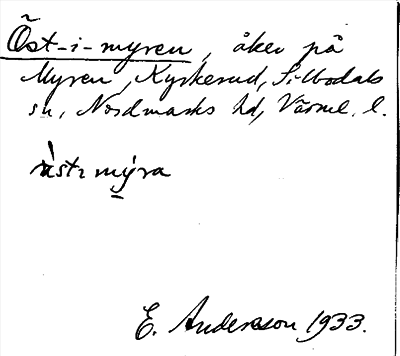 Öst-i-myren, åker på
Myren, Kyrkerud, Silbodals
sn, Nordmarks hd, Värml. l.
E. Anderson 1933.